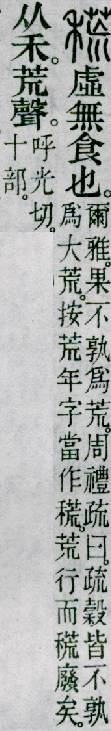 虛無食也。
爾雅。果不孰爲荒。周禮疏曰。疏穀皆不孰
爲大荒。按荒年字當作。荒行而廢矣。
从禾。荒聲。
呼光切。
十部。